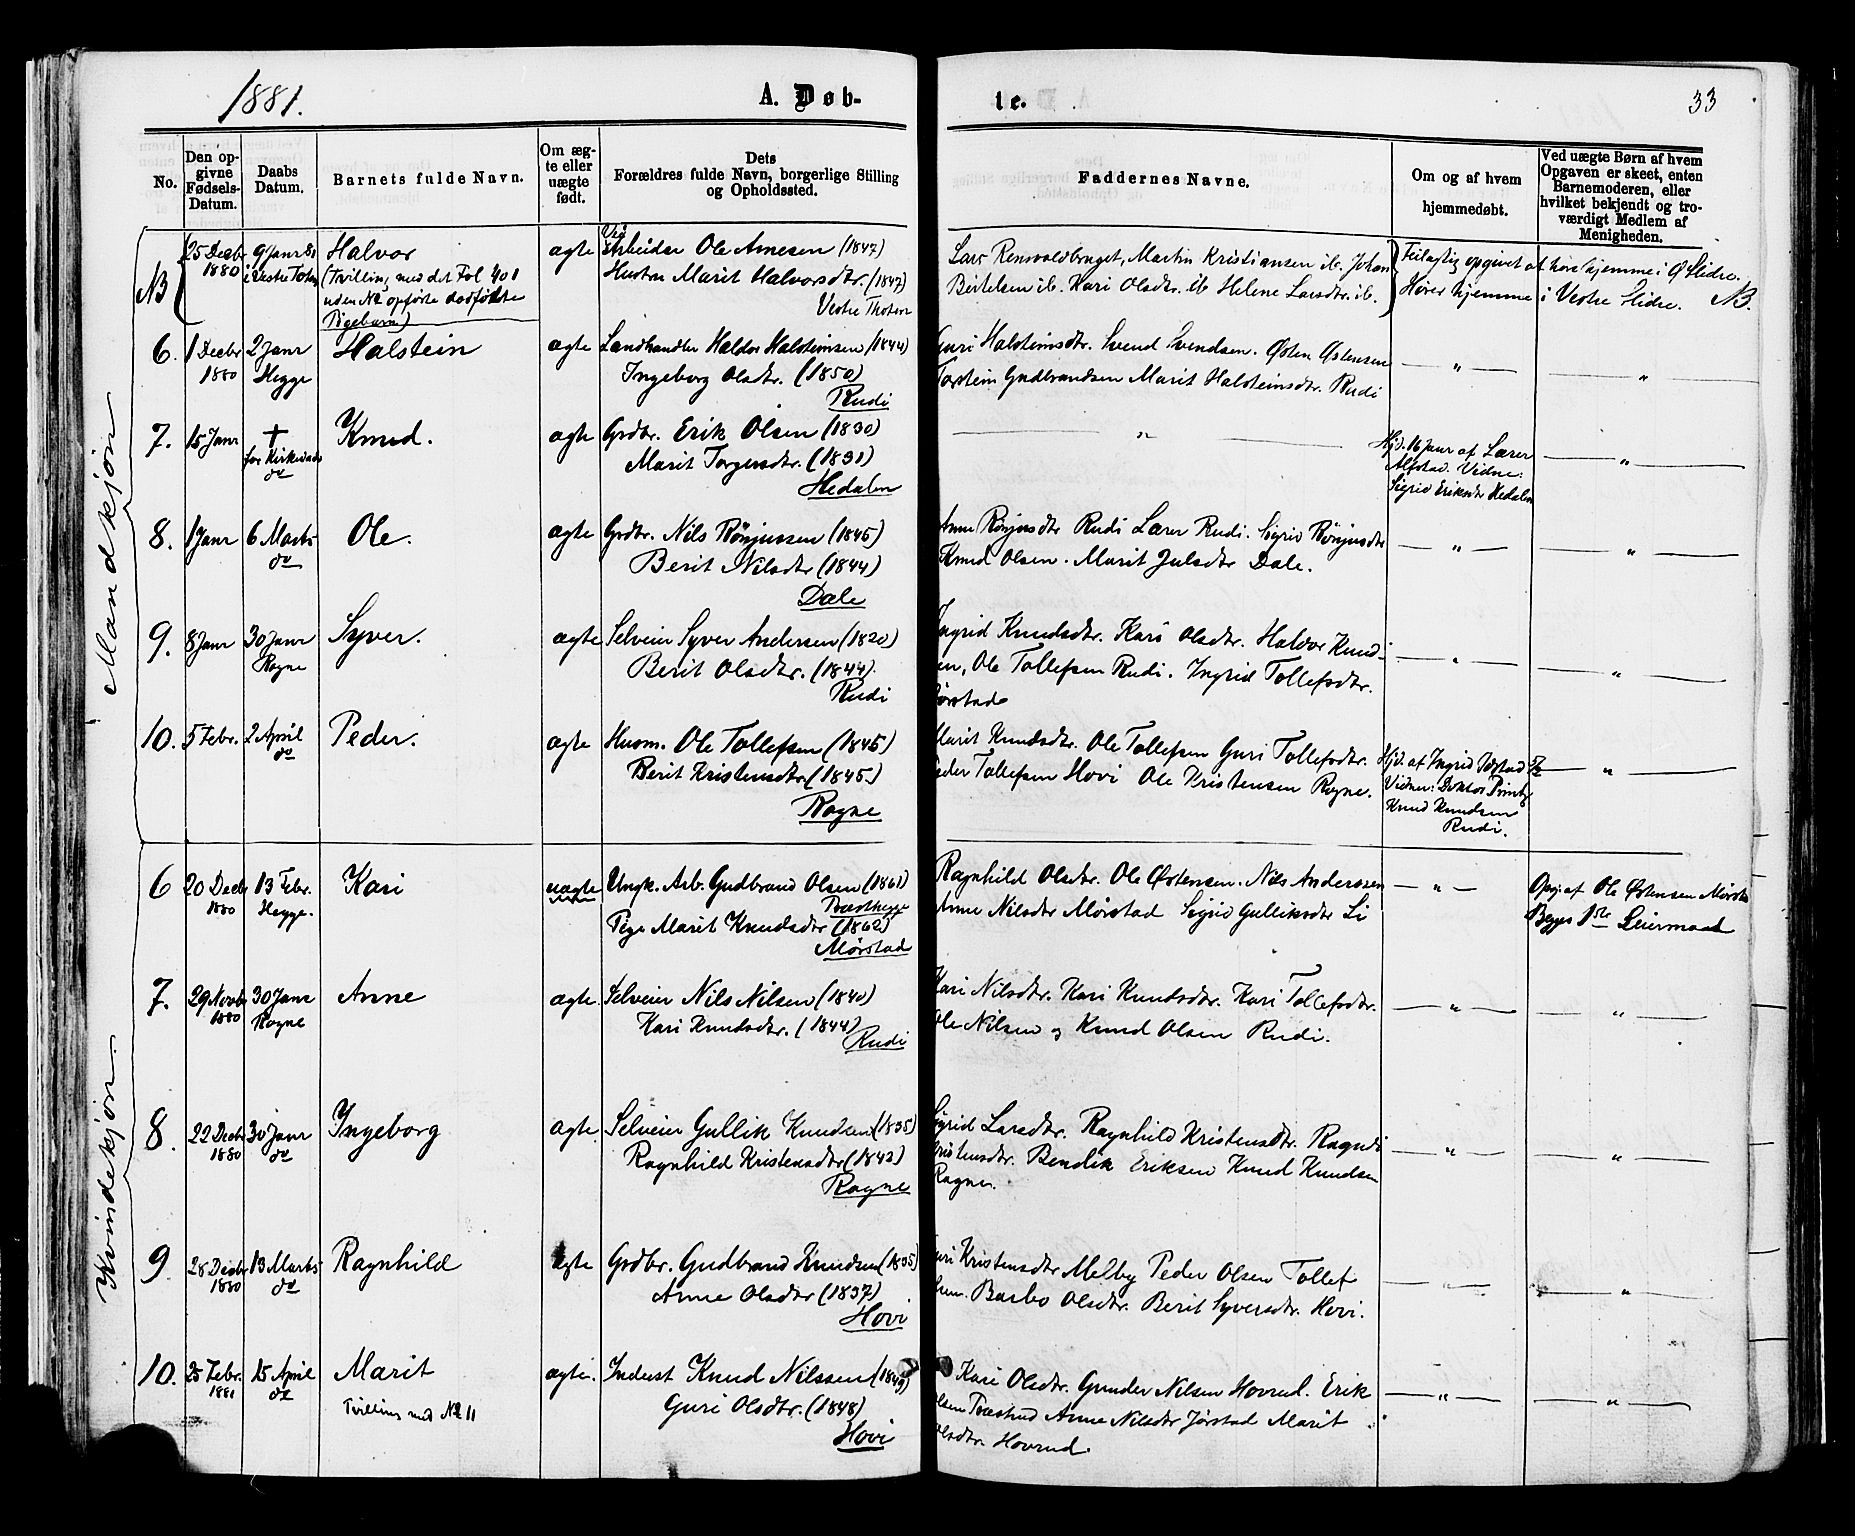 1881.
A. Døb-
te.
33
No.
Den op-
givne
Fødsels-
Datum.
Daabs
Datum.
Barnets fulde Navn.
Om æg-
te eller
uægte
født.
Dets
Forældres fulde Navn, borgerlige Stilling
og Opholdssted.
Faddernes Navne.
Om og af hvem
hjemmedøbt.
Ved uægte Børn af hvem
Opgaven er skeet, enten
Barnemoderen, eller
hvilket bekjendt og tro-
værdigt Medlem af
Menigheden.
Mandkjøn
NB
25 Decbr
1880
9 Janr 81
i Vestre Toten
Halvor
(Tvilling med det Fol 401
uden No opførte dødfødte
Pigebarn)
ægte
Arbeider Ole Arnesen (1847)
Hustru Marit Halvorsdtr. (1847)
Vestre Thoten
Lars Rensvoldbraget, Martin Kristiansen ib. Johan
Bertelsen ib. Kari Olsdtr. ib Helene Larsdtr. ib.
Feilagtig opgivet at høre hjemme i Ø Slidre.
Hører hjemme i Vestre Slidre. NB.
6. 1 Decbr
1880
2 Janr
Hegge
Halstein
ægte
Landhandler Haldor Halsteinsen (1844)
Ingeborg Olsdtr. (1850)
Rudi
Guri Halsteinsdtr. Svend Svendsen. Østen Østensen
Torstein Gudbrandsen Marit Halsteinsdtr. Rudi
— " —
— " —
7. 15 Janr
†
før Kirkedaab
do
Knud.
ægte
Grdbr. Erik Olsen (1830)
Marit Torgersdtr. (1831)
Hedalen
— " —
Hjd. 16 Janr af Lærer
Alfstad. Vidne:
Sigrid Eriksdtr Hedalen
— " —
8. 1 Janr
6 Marts
do
Ole.
ægte
Grdbr. Nils Rønjussen (1845)
Berit Nilsdtr (1844)
Dale
Anne Rønjusdtr Rudi Lærer Rudi. Sigrid Rønjusdtr
Knud Olsen. Marit Julsdtr Dale.
— " —
— " —
9. 8 Janr
30 Janr
Rogne
Syver.
ægte
Selveier Syver Andersen (1820)
Berit Olsdtr. (1844)
Rudi
Ingrid Knudsdtr. Kari Olsdtr. Haldor Knud-
en, Ole Tollefsen Rudi. Ingrid Tollefsdtr.
Jørstad
— " —
— " —
10. 5 Febr.
2 April
do
Peder.
ægte
Husm. Ole Tollefsen (1845)
Berit Kristensdtr (1845)
Rogne
Marit Knudsdtr. Ole Tollefsen Guri Tollefsdtr.
Peder Tollefsen Hovi Ole Kristensen Rogne.
Hjd. af Ingrid Jørstad
Vidner: Doktor Printz
Knud Knudsen
Rudi.
— " —
Kvindekjøn.
6 20 Decbr
1880
13 Febr.
Hegge.
Kari
uægte
Ungk. Arb. Gudbrand Olsen (1861)
Pige Marit Knudsdtr (1862)
Mørstad
Ragnhild Olsdtr. Ole Østensen. Nils Anderssen
Anne Nilsdtr Mørstad Sigrid Gulliksdtr Li
— " —
Opg. af Ole Østensen Mørstad
Begges 1ste Leiermaal
7. 29 Novbr
1880
30 Janr
Rogne
Anne
ægte.
Selveier Nils Nilsen (1840)
Kari Knudsdtr. (1844)
Rudi
Kari Nilsdtr. Kari Knudsdtr. Kari Tollefsdtr.
Ole Nilsen og Knud Olsen Rudi.
— " —
— " —
8. 22 Decbr
1880
30 Janr
do
Ingeborg
ægte.
Selveier Gullik Knudsen (1835)
Ragnhild Kristensdtr (1842)
Rogne
Sigrid Larsdtr. Ragnhild Kristensdtr. Ragndi
Kristensdtr. Bendik Eriksen Knud Knudsen
Rogne.
— " —
— " —
9. 28 Decbr
1880
13 Marts
do
Ragnhild
ægte
Grdbr. Gudbrand Knudsen (1835)
Anne Olsdtr (1837)
Hovi
Guri Kristensdtr Melby Peder Olsen Tollef
Barbo Olsdtr. Berit Syversdtr. Hovi.
— " —
— " —
10. 25 Febr.
1881
15 April
do
Marit
Tvilling med No 11
ægte.
Inderst Knud Nilssen (1849)
Guri Olsdtr. (1848)
Hovi
Kari Olsdtr. Gunder Nilsen Hovrud. Erik
Olsen Anne Nilsdtr Jørstad Marit
Olsdtr. Hovrud.
— " —
— " —